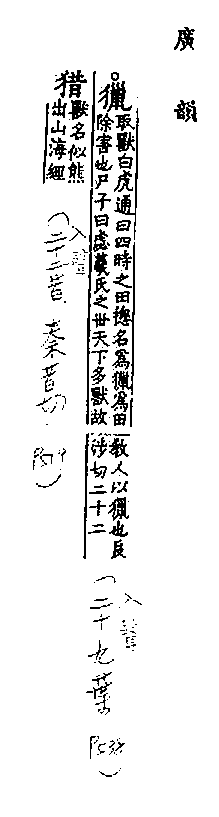 廣韻
獵
取獸白虎通曰四時之田摠名為獵為田
除害也尸子曰虙羲氏之世天下多獸故
教人以獵也良
涉切二十二
(入聲
二十九葉 P538)
猎
獸名似熊
出山海經
(入聲
二十二昔 秦昔切. P519)